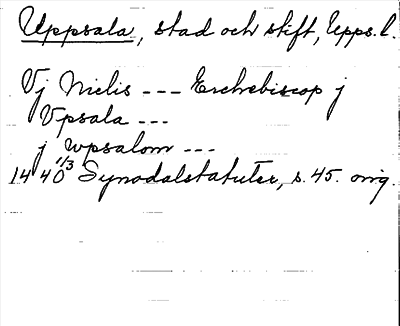 Uppsala, stad och stift, Upps. l.
Vj Niclis --- Erchebiscop j
Vpsala ---
j wpsalom ---
1440 1/3 Synodalstatuter, s. 45. orig.